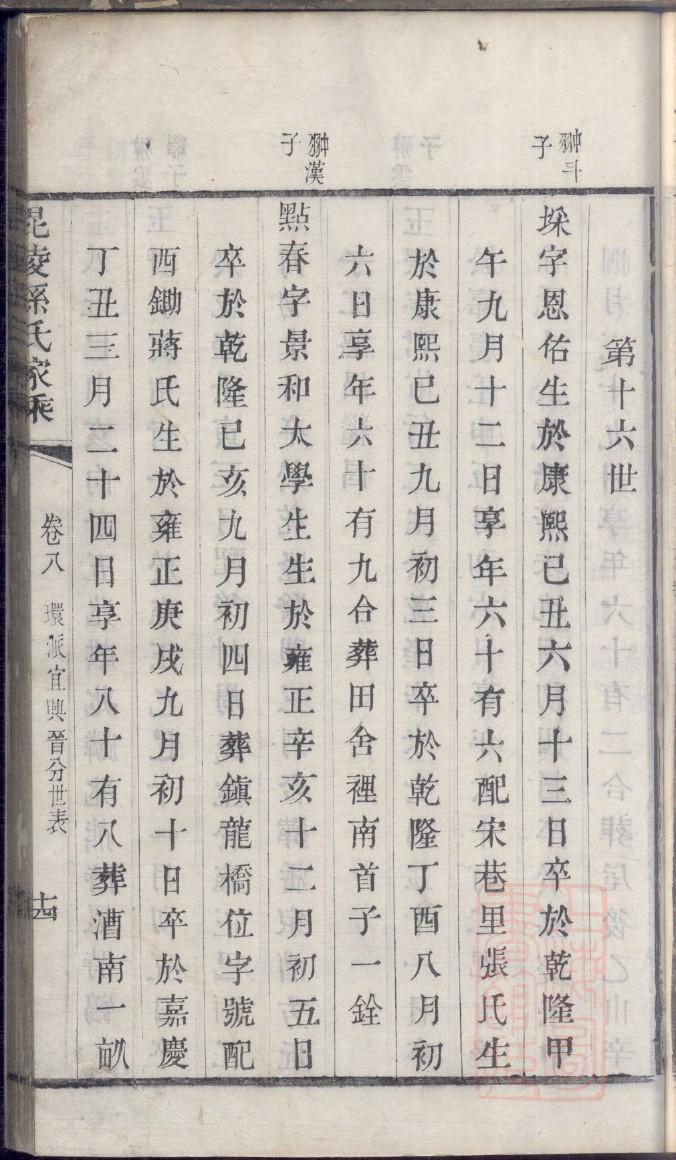 第十六世
翀斗子
埰字恩佑生於康熙己丑六月十三日卒於乾隆甲
午九月十二日享年六十有六配宋巷里張氏生
於康熙己丑九月初三日卒於乾隆丁酉八月初
六日享年六十有九合葬田舍裡南首子一銓
翀漢子
點春字景和太學生生於雍正辛亥十二月初五日
卒於乾隆已亥九月初四日葬鎮龍橋位字號配
西鋤蔣氏生於雍正庚戌九月初十日卒於嘉慶
丁丑三月二十四日享年八十有八葬漕南一畝
毘陵孫氏家乘
卷八 環派宜興晉分世表 十四